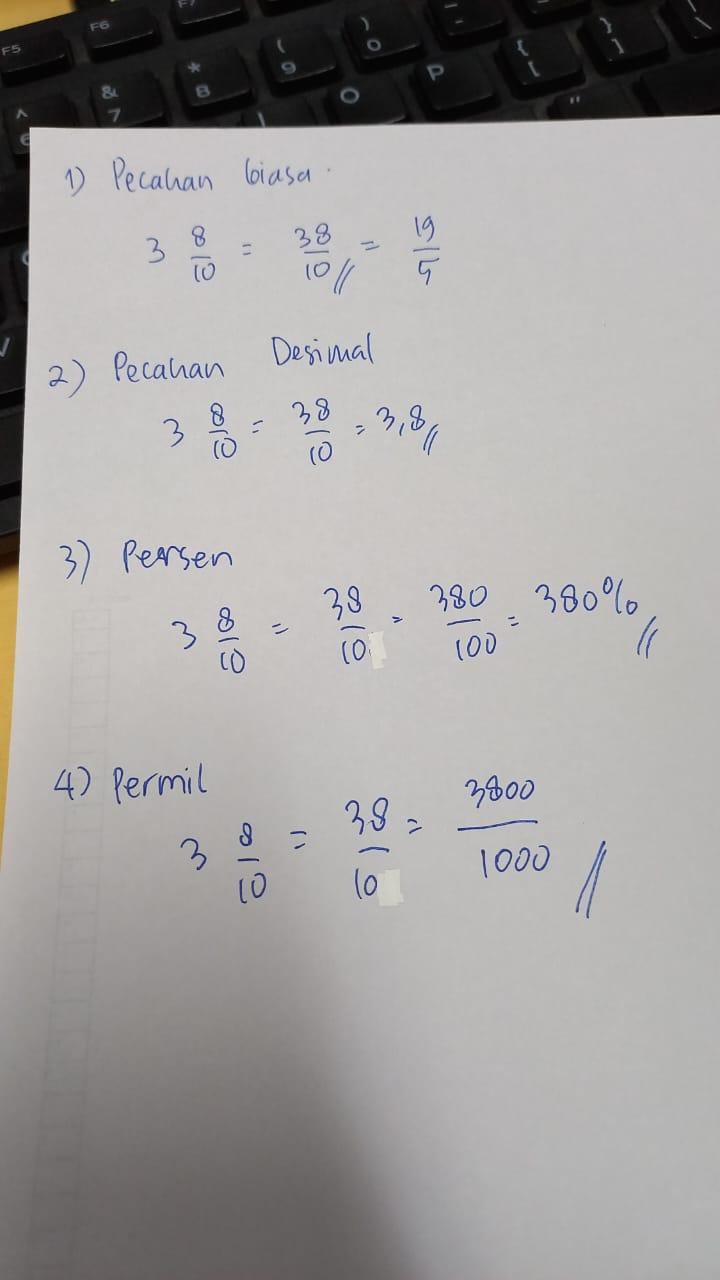 F5 F6 F7
^ 6 & 7 * 8 ( 9 ) 0 - { [ } ]
O P "
1) Pecahan biasa.
3 8/10 = 38/10 // = 19/5
2) Pecahan Desimal
3 8/10 = 38/10 = 3,8 //
3) Persen
3 8/10 = 38/10 = 380/100 = 380% //
4) Permil
3 8/10 = 38/10 = 3800/1000 //